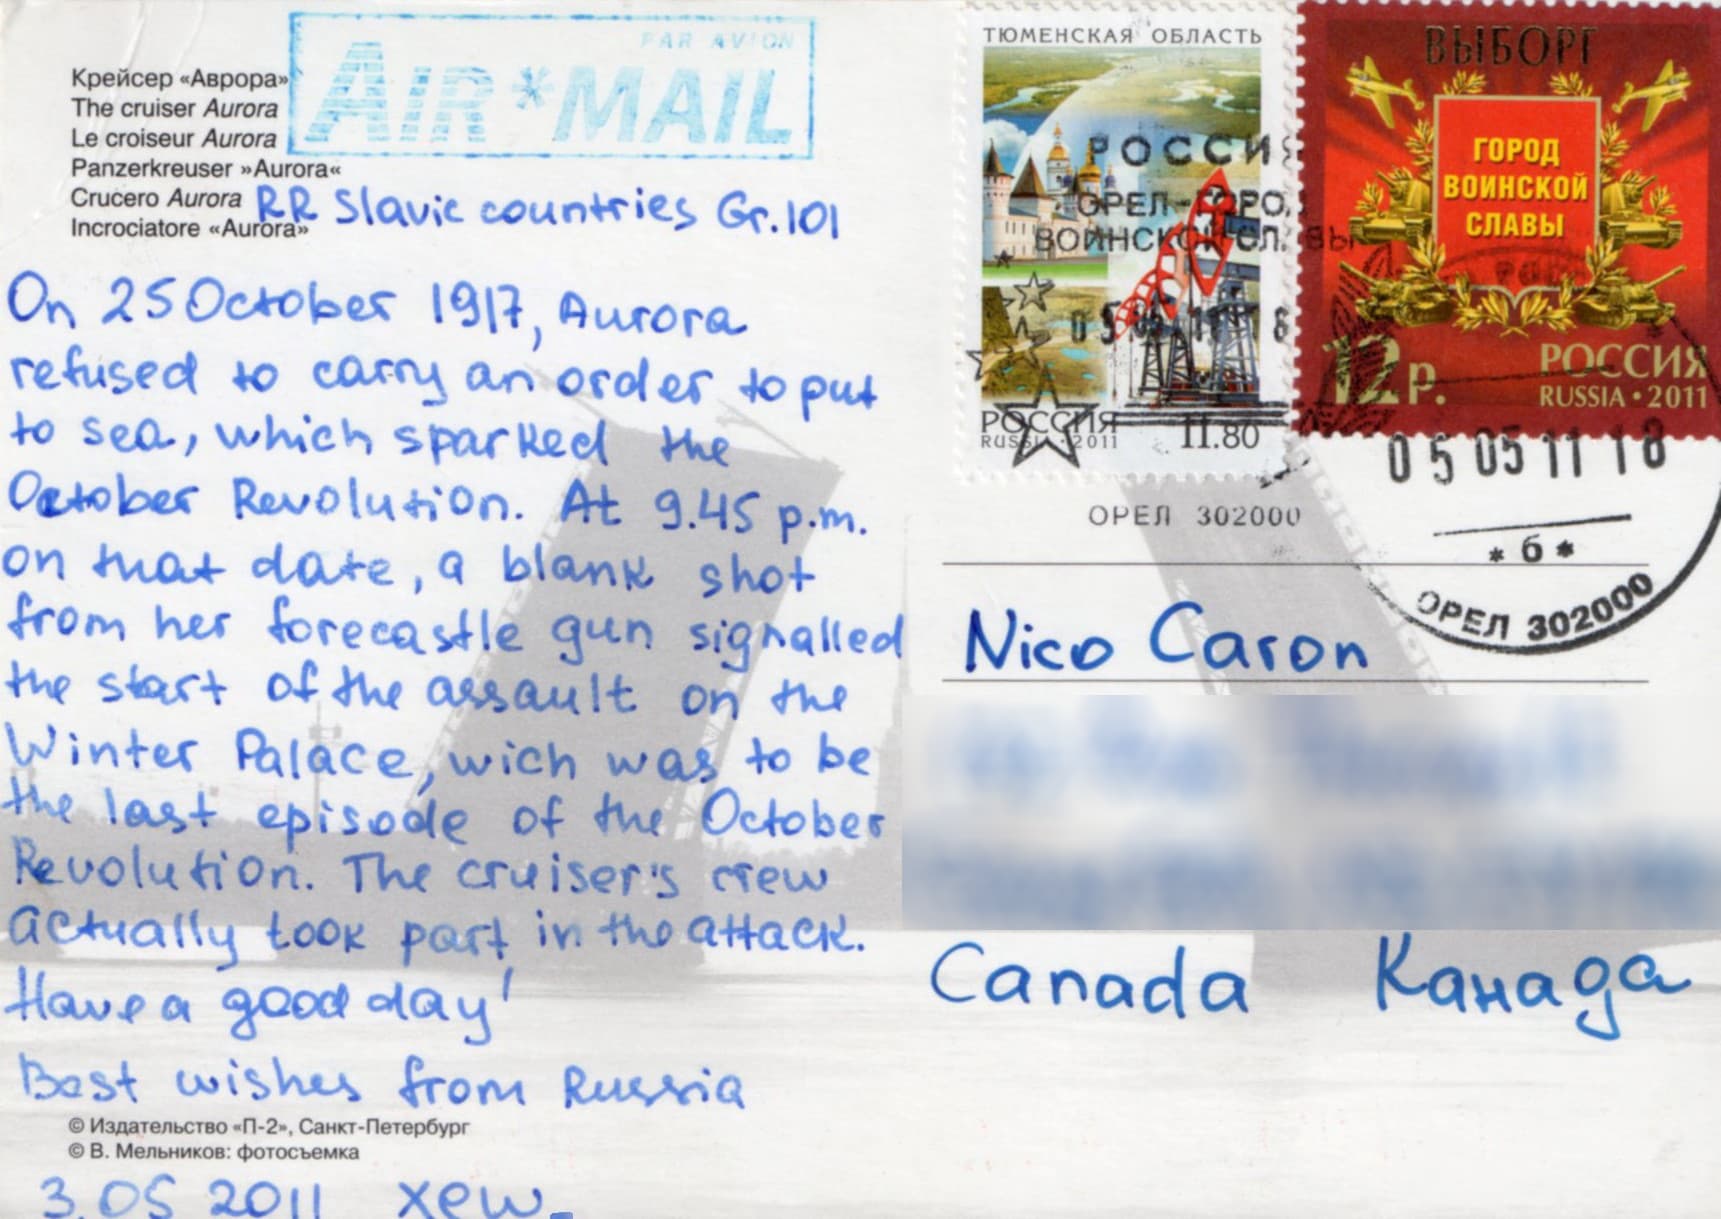 Крейсер «Аврора»
The cruiser Aurora
Le croiseur Aurora
Panzerkreuser »Aurora«
Crucero Aurora
Incrociatore «Aurora»
PAR AVION
AIR*MAIL
RR Slavic countries Gr.101
On 25 October 1917, Aurora
refused to carry an order to put
to sea, which sparked the
October Revolution. At 9.45 p.m.
on that date, a blank shot
from her forecastle gun signalled
the start of the assault on the
Winter Palace, wich was to be
the last episode of the October
Revolution. The cruiser's crew
actually took part in the attack.
Have a good day!
Best wishes from Russia
© Издательство «П-2», Санкт-Петербург
© В. Мельников: фотосъемка
3.05 2011 xew
ТЮМЕНСКАЯ ОБЛАСТЬ
РОССИЯ
RUSSIA • 2011
11.80
ВЫБОРГ
ГОРОД
ВОИНСКОЙ
СЛАВЫ
12р.
РОССИЯ
RUSSIA • 2011
РОССИ
ОРЕЛ - ГОРО
ВОИНСКОЙ СЛАВЫ
05 05 11 18
* б *
ОРЕЛ 302000
ОРЕЛ 302000
Nico Caron
Canada Канада